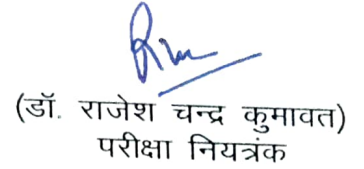 (डॉ. राजेश चन्द्र कुमावत)
परीक्षा नियत्रंक